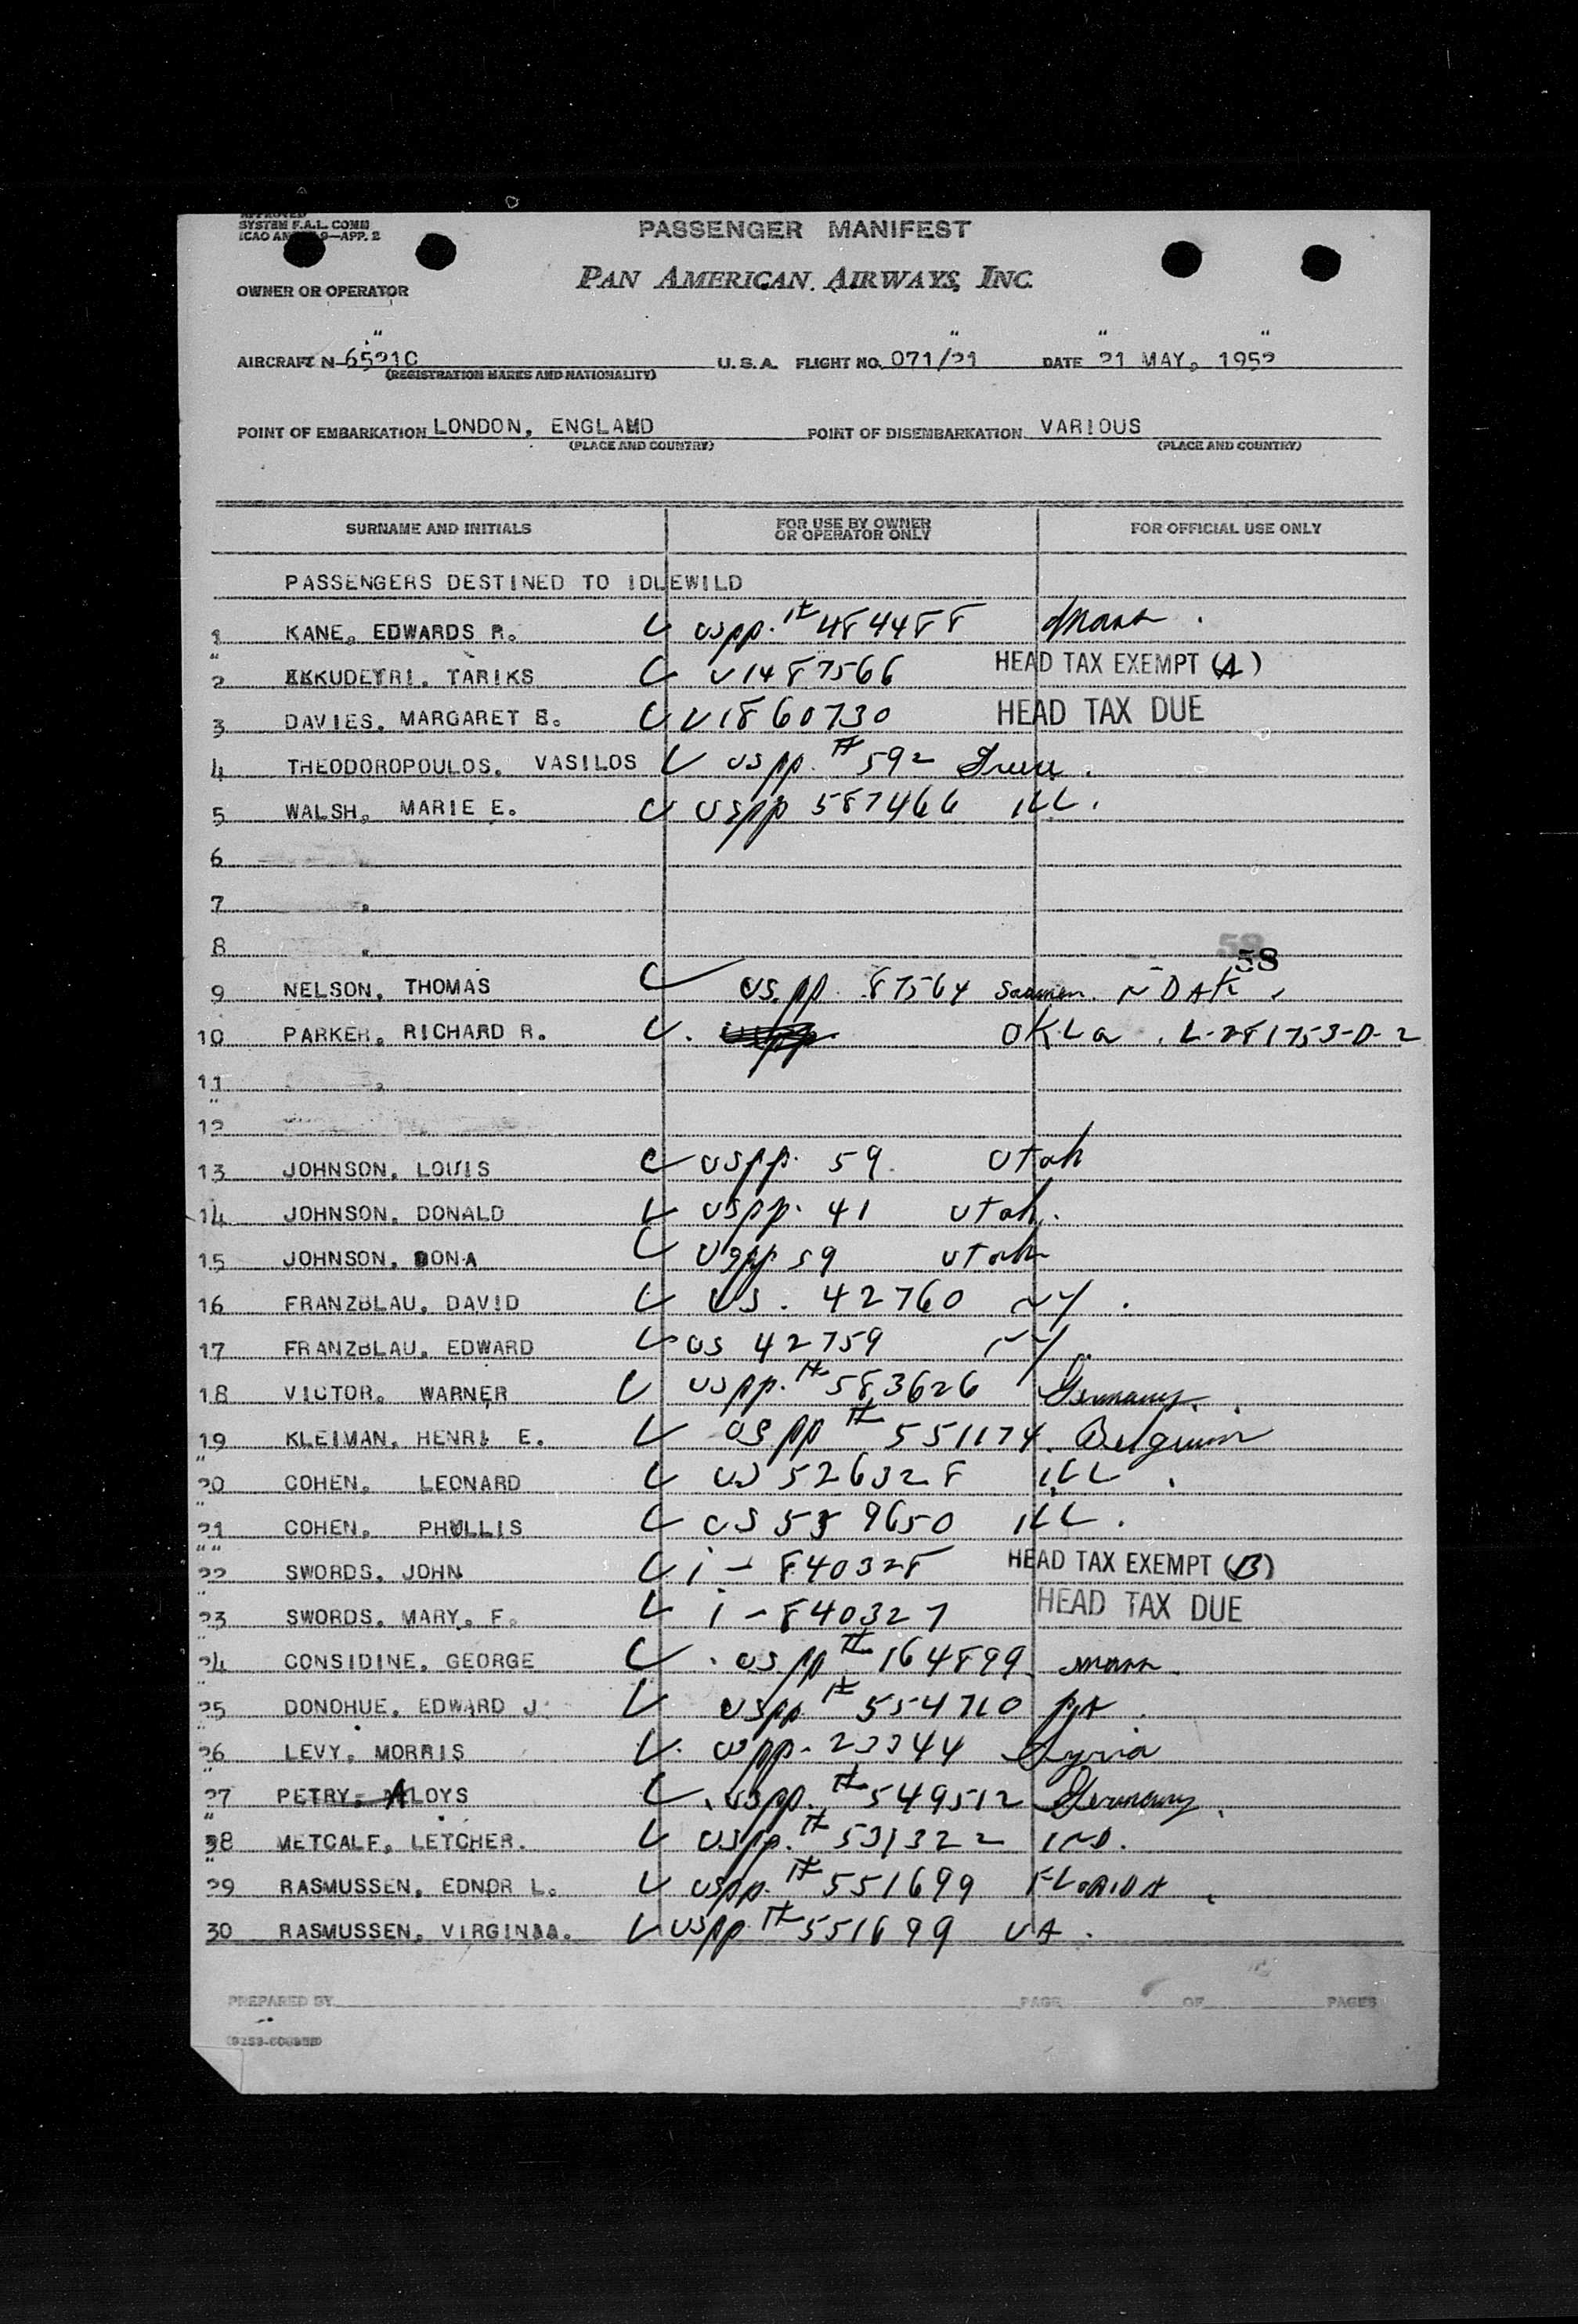 APPROVED
SYSTEM F.A.L. COMM
ICAO ANNEX 9—APP. 2
PASSENGER MANIFEST
PAN AMERICAN AIRWAYS, INC.
OWNER OR OPERATOR
AIRCRAFT N-6521C U.S.A. FLIGHT NO. 071/21 DATE 21 MAY, 1952
(REGISTRATION MARKS AND NATIONALITY)
POINT OF EMBARKATION LONDON, ENGLAND POINT OF DISEMBARKATION VARIOUS
(PLACE AND COUNTRY) (PLACE AND COUNTRY)
SURNAME AND INITIALS FOR USE BY OWNER OR OPERATOR ONLY FOR OFFICIAL USE ONLY
PASSENGERS DESTINED TO IDLEWILD
1 KANE, EDWARDS R. uspp. # 484488 Mass.
2 KUDEYRI, TARIKS V1487566 HEAD TAX EXEMPT (A)
3 DAVIES, MARGARET B. V1860730 HEAD TAX DUE
4 THEODOROPOULOS, VASILOS uspp. # 592
5 WALSH, MARIE E. uspp 587466 ILL.
6
7
8
58
9 NELSON, THOMAS us pp. 87564 Seaman. N DAK
10 PARKER, RICHARD R. OKLa. L-281753-D-2
11
12
13 JOHNSON, LOUIS uspp. 59 Utah
14 JOHNSON, DONALD uspp. 41 Utah.
15 JOHNSON, DONA uspp 59 Utah
16 FRANZBLAU, DAVID US. 42760 NY.
17 FRANZBLAU, EDWARD US 42759 NY.
18 VICTOR, WARNER uspp. # 583626 Germany.
19 KLEIMAN, HENRI E. uspp # 551174. Belgium
20 COHEN, LEONARD US 526328 ILL.
21 COHEN, PHYLLIS US 559650 ILL.
22 SWORDS, JOHN i - 840328 HEAD TAX EXEMPT (B)
23 SWORDS, MARY, F. i - 840327 HEAD TAX DUE
24 CONSIDINE, GEORGE us pp # 164899 Mass.
25 DONOHUE, EDWARD J. uspp # 554710 PA.
26 LEVY, MORRIS uspp. 23344 Syria
27 PETRY, ALOYS uspp. # 549512 Germany.
28 METCALF, LETCHER. uspp. # 531322 IND.
29 RASMUSSEN, EDNOR L. uspp. # 551699 FLORIDA
30 RASMUSSEN, VIRGINIA. uspp # 551699 VA.
PREPARED BY PAGE OF PAGES